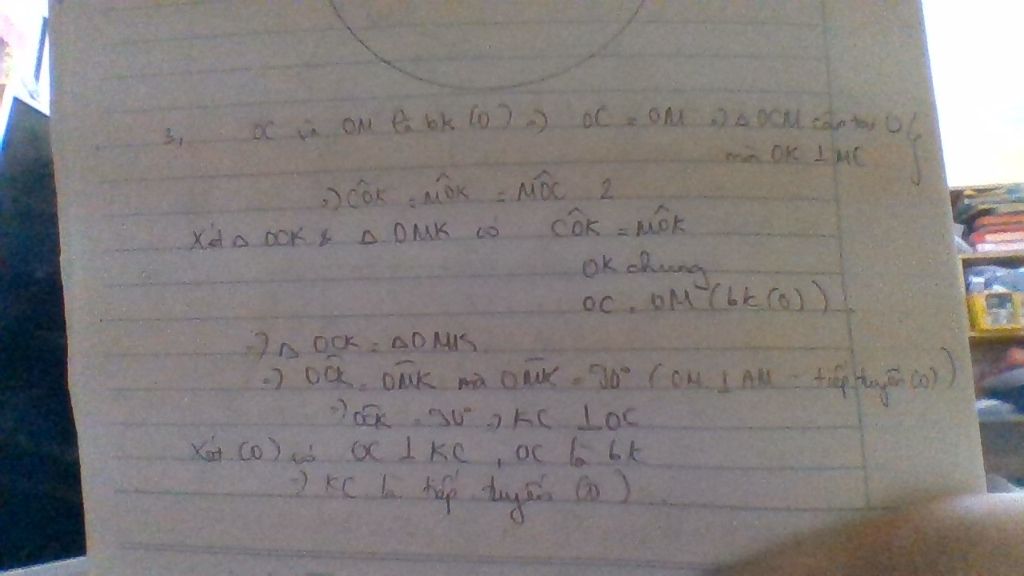 3, OC và OM là bk (O) => OC = OM => Δ OCM cân tại O
mà OK ⊥ MC
=> CÔK = MÔK = MÔC 2
Xét Δ OCK & Δ OMK có CÔK = MÔK
OK chung
OC = OM (bk (O))
=> Δ OCK = Δ OMK
=> OĈK = OM̂K mà OM̂K = 90° (OM ⊥ AM - tiếp tuyến (O))
=> OĈK = 90° => KC ⊥ OC
Xét (O) có OC ⊥ KC, OC là bk
=> KC là tiếp tuyến (O)